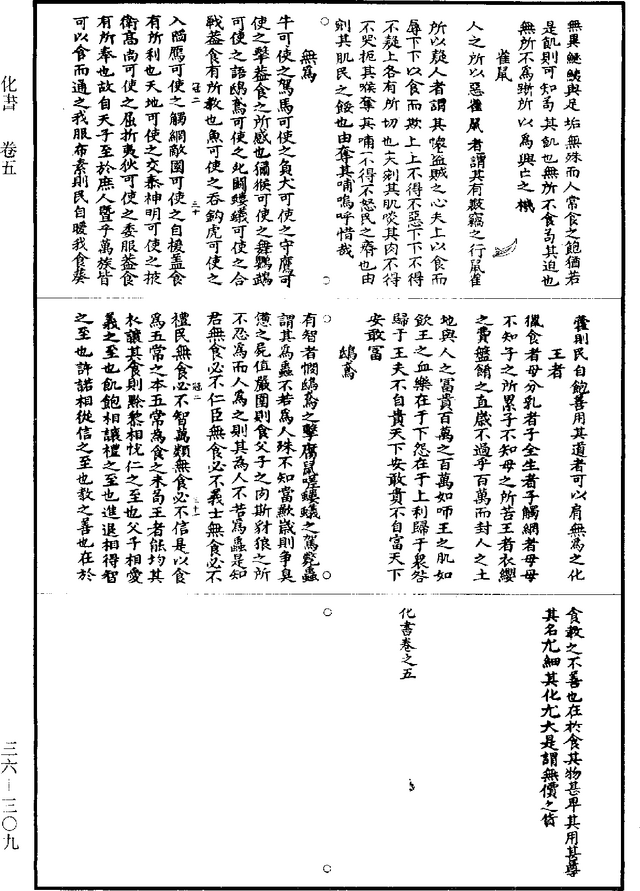 無異鯸鮧與足垢無殊而人常食之飽猶若
是飢則可知茍其飢也無所不食茍其迫也
無所不為斯所以為興亡之機
雀鼠
人之所以惡雀鼠者謂其有攘竊之行鼠雀
所以疑人者謂其懷盜賊之心夫上以食而
辱下下以食而欺上上不得不惡下下不得
不疑上各有所切也夫剜其肌啖其肉不得
不哭扼其喉奪其哺不得不怒民之瘠也由
剜其肌民之餒也由奪其哺嗚呼惜哉
無為
牛可使之駕馬可使之負犬可使之守鷹可
使之擊蓋食之所感也獼猴可使之舞鸚鵡
可使之語鴟鳶可使之死鬪螻蟻可使之合
戰蓋食有所教也魚可使之吞鈎虎可使之
冠二 三十
入陷鴈可使之觸網敵國可使之自援蓋食
有所利也天地可使之交泰神明可使之掖
衛高尚可使之屈折夷狄可使之委服蓋食
有所奉也故自天子至於庶人暨乎萬族皆
可以食而通之我服布素則民自暖我食葵
藿則民自飽善用其道者可以肩無為之化
王者
獵食者母分乳者子全生者子觸網者母母
不知子之所累子不知母之所苦王者衣纓
之費盤餚之直歲不過乎百萬而封人之土
地與人之富貴百萬之百萬如咂王之肌如
飲王之血樂在于下怨在于上利歸于衆咎
歸于王夫不自貴天下安敢貴不自富天下
安敢富
鴟鳶
有智者憫鴟鳶之擊腐鼠嗟螻蟻之駕斃蟲
謂其為蟲不若為人殊不知當歉歲則爭臭
憊之屍值嚴圍則食父子之肉斯豺狼之所
不忍為而人為之則其為人不若為蟲是知
君無食必不仁臣無食必不義士無食必不
禮民無食必不智萬類無食必不信是以食
冠二 三十一
為五常之本五常為食之末茍王者能均其
衣讓其食則黔黎相悅仁之至也父子相愛
義之至也飢飽相讓禮之至也進退相得智
之至也許諾相從信之至也教之善也在於
食教之不善也在於食其物甚卑其用甚尊
其名尤細其化尤大是謂無價之貨
化書卷之五
化書 卷五
三六－三〇九